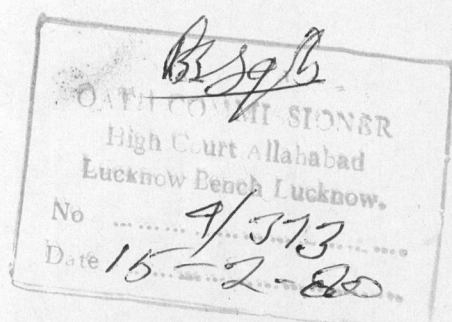 OATH COMMISSIONER
High Court Allahabad
Lucknow Bench Lucknow.
No 9/373
Date 15-2-80